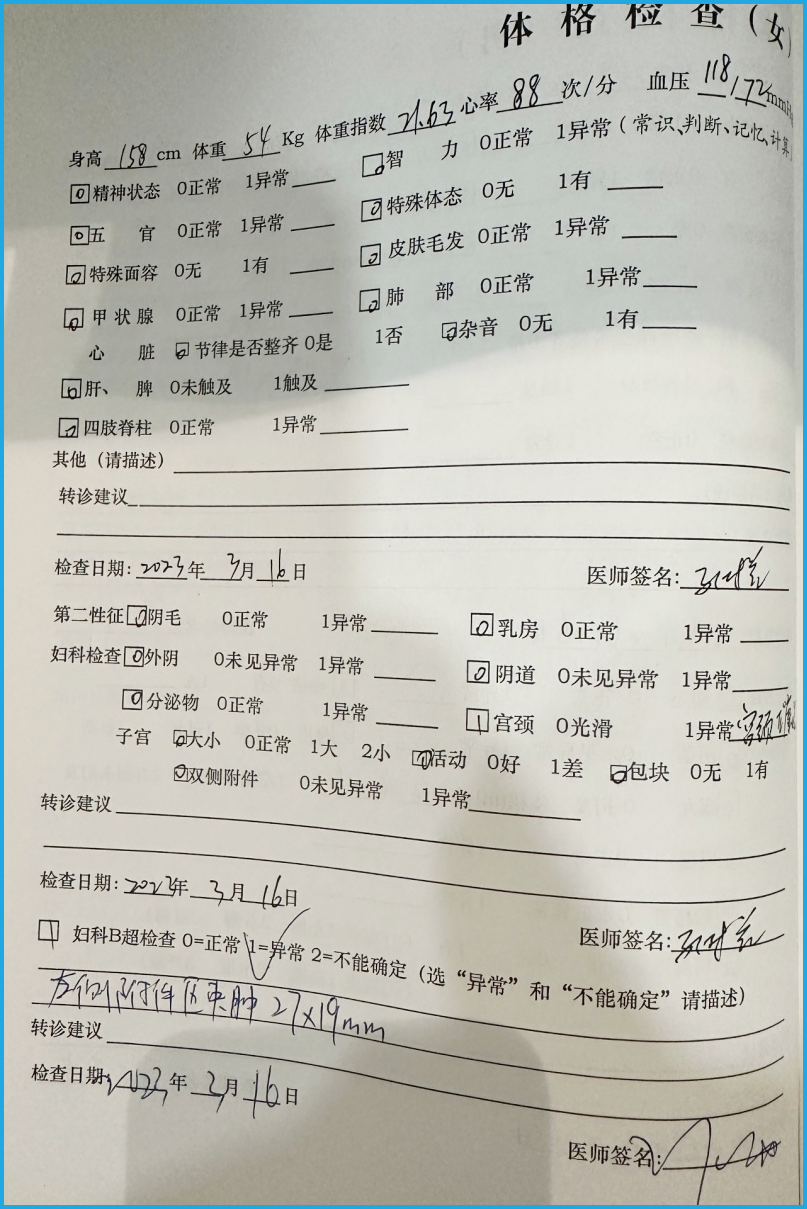 体格检查（女）
身高 158 cm 体重 54 Kg 体重指数 21.63 心率 88 次/分 血压 118/72 mmH
0 精神状态 0正常 1异常____ 0 智力 0正常 1异常（常识、判断、记忆、计算
0 五官 0正常 1异常____ 0 特殊体态 0无 1有____
0 特殊面容 0无 1有____ 0 皮肤毛发 0正常 1异常____
0 甲状腺 0正常 1异常____ 0 肺部 0正常 1异常____
心脏 0 节律是否整齐 0是 1否 0 杂音 0无 1有____
0 肝、脾 0未触及 1触及____
0 四肢脊柱 0正常 1异常____
其他（请描述）
转诊建议
检查日期: 2023年 3月 16日 医师签名:
第二性征 0 阴毛 0正常 1异常____ 0 乳房 0正常 1异常____
妇科检查 0 外阴 0未见异常 1异常____ 0 阴道 0未见异常 1异常____
0 分泌物 0正常 1异常____ 1 宫颈 0光滑 1异常 宫颈
子宫 0 大小 0正常 1大 2小 0 活动 0好 1差 0 包块 0无 1有
0 双侧附件 0未见异常 1异常____
转诊建议
检查日期: 2023年 3月 16日
医师签名:
1 妇科B超检查 0=正常 1=异常 2=不能确定（选“异常”和“不能确定”请描述）
左侧附件区囊肿 27×19mm
转诊建议
检查日期: 2023年 3月 16日
医师签名: